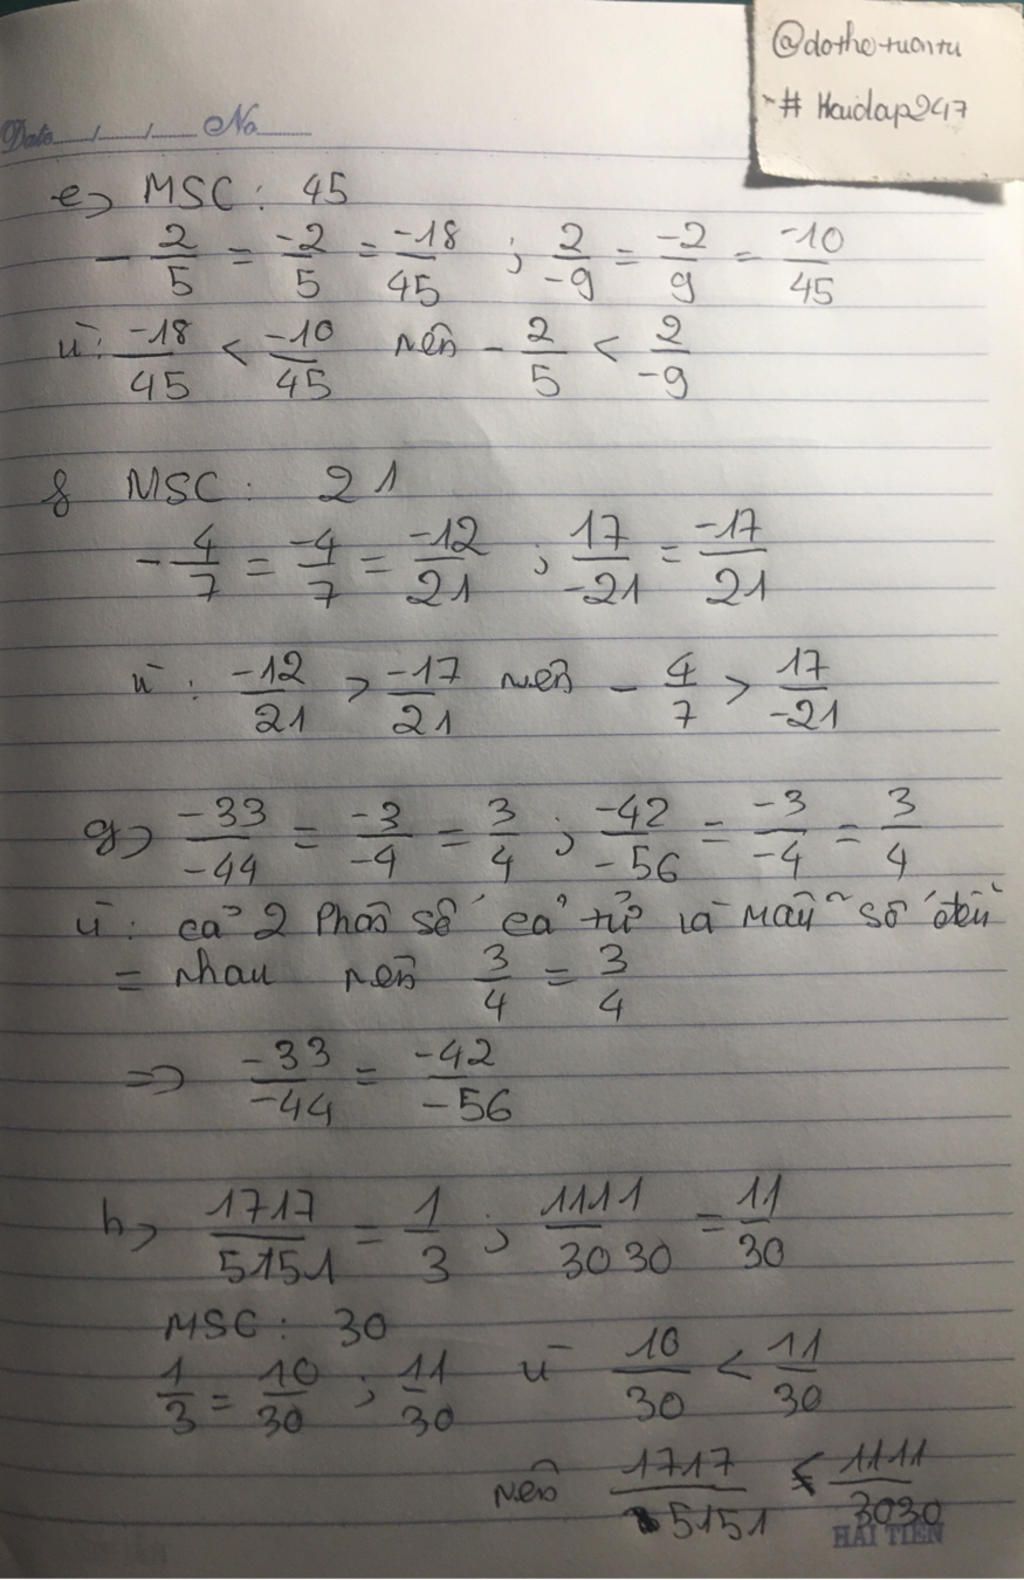 @dothetuantu
# Hoidap247
Date / / No
e) MSC : 45
- 2/5 = -2/5 = -18/45 ; 2/-9 = -2/9 = -10/45
vì : -18/45 < -10/45 nên - 2/5 < 2/-9
f MSC : 21
- 4/7 = -4/7 = -12/21 ; 17/-21 = -17/21
vì : -12/21 > -17/21 nên - 4/7 > 17/-21
g) -33/-44 = -3/-4 = 3/4 ; -42/-56 = -3/-4 = 3/4
vì : cả 2 Phân số cả tử và mẫu số đều
= nhau nên 3/4 = 3/4
=> -33/-44 = -42/-56
h) 1717/5151 = 1/3 ; 1111/3030 = 11/30
MSC : 30
1/3 = 10/30 ; 11/30 vì 10/30 < 11/30
nên 1717/5151 < 1111/3030
HẢI TIẾN